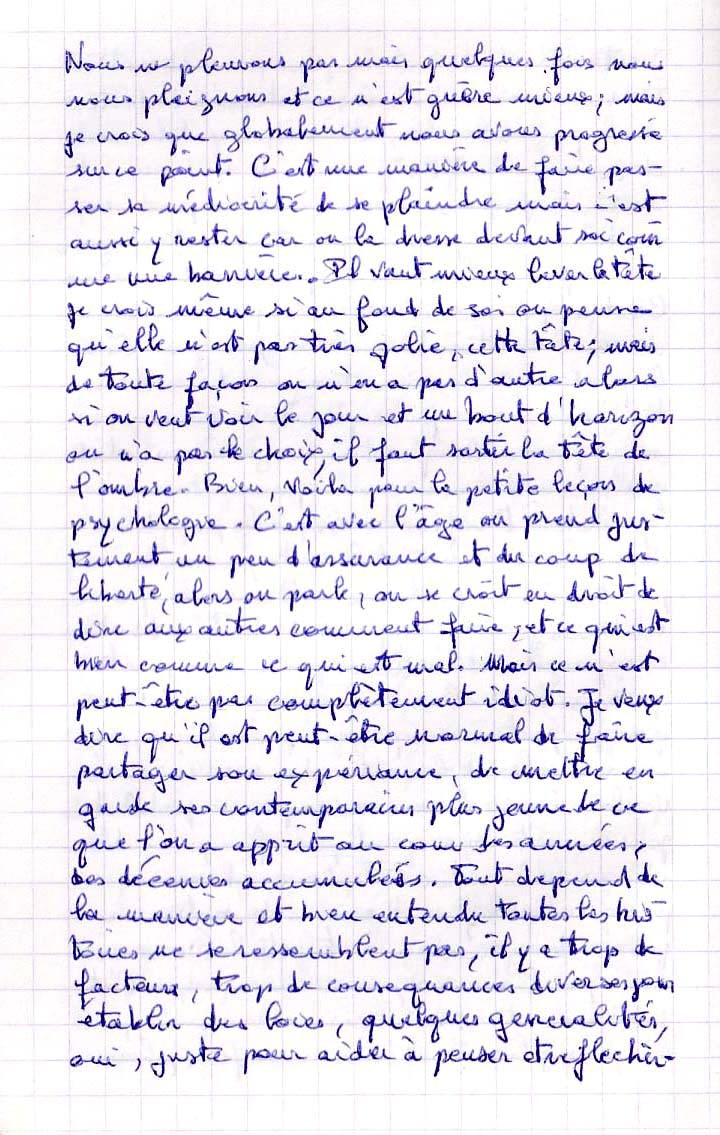 Nous ne pleurons pas mais quelques fois nous
nous plaignons et ce n'est guère mieux ; mais
je crois que globalement nous avons progressé
sur ce point. C'est une manière de faire pas-
ser sa médiocrité de se plaindre mais c'est
aussi y rester car on la dresse devant soi com
me une barrière. Il vaut mieux lever la tête
je crois même si au fond de soi on pense
qu'elle n'est pas très jolie, cette tête ; mais
de toute façon on n'en a pas d'autre alors
si on veut voir le jour et un bout d'horizon
on n'a pas le choix, il faut sortir la tête de
l'ombre. Bien, voilà pour la petite leçon de
psychologie. C'est avec l'âge on prend jus-
tement un peu d'assurance et du coup de
liberté, alors on parle, on se croit en droit de
dire aux autres comment faire, et ce qui est
bien comme ce qui est mal. Mais ce n'est
peut-être pas complètement idiot. Je veux
dire qu'il est peut-être normal de faire
partager son expériance, de mettre en
garde ses contemporains plus jeune de ce
que l'on a apprit au cour des années,
des décenies accumulées. Tout dépend de
la manière et bien entendu toutes les his
toires ne se ressemblent pas, il y a trop de
facteurs, trop de consequances diverses pour
établir des loies, quelques généralités,
oui, juste pour aider à penser et réflechir